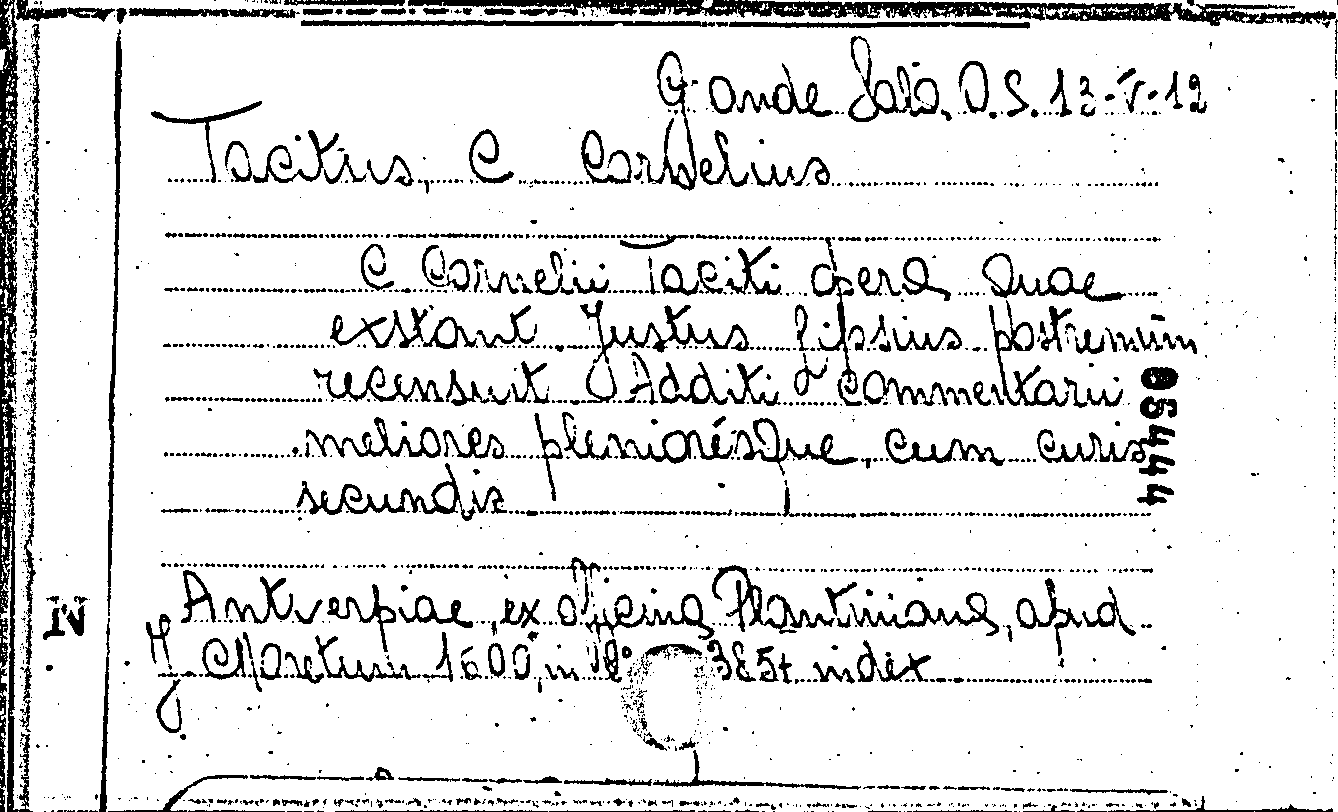 Grande Sala, D.S. 13-V-12
Tacitus, C. Cornelius
C Cornelii Taciti opera quae
exstant. Justus Lipsius postremùm
recensuit. Additi commentarii
meliores pleniorésque, cum curis
secundis
Antverpiae, ex officina Plantiniana, apud
J. Moretum 1600, in 8° 385+ index
05444
IN